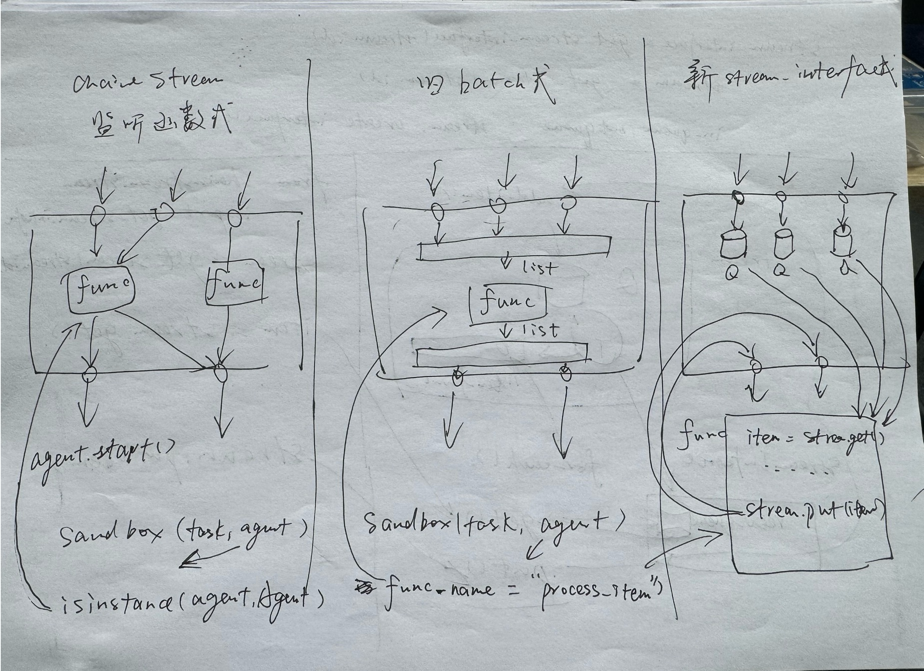 Chaine Stream
监听函数式
func
func
agent.start()
Sandbox (task, agent)
isinstance(agent, Agent)
旧 batch式
list
func
list
Sandbox(task, agent)
func_name = "process_item")
新 stream_interface式
Q
Q
Q
func
item = strea.get()
......
stream.put(item)